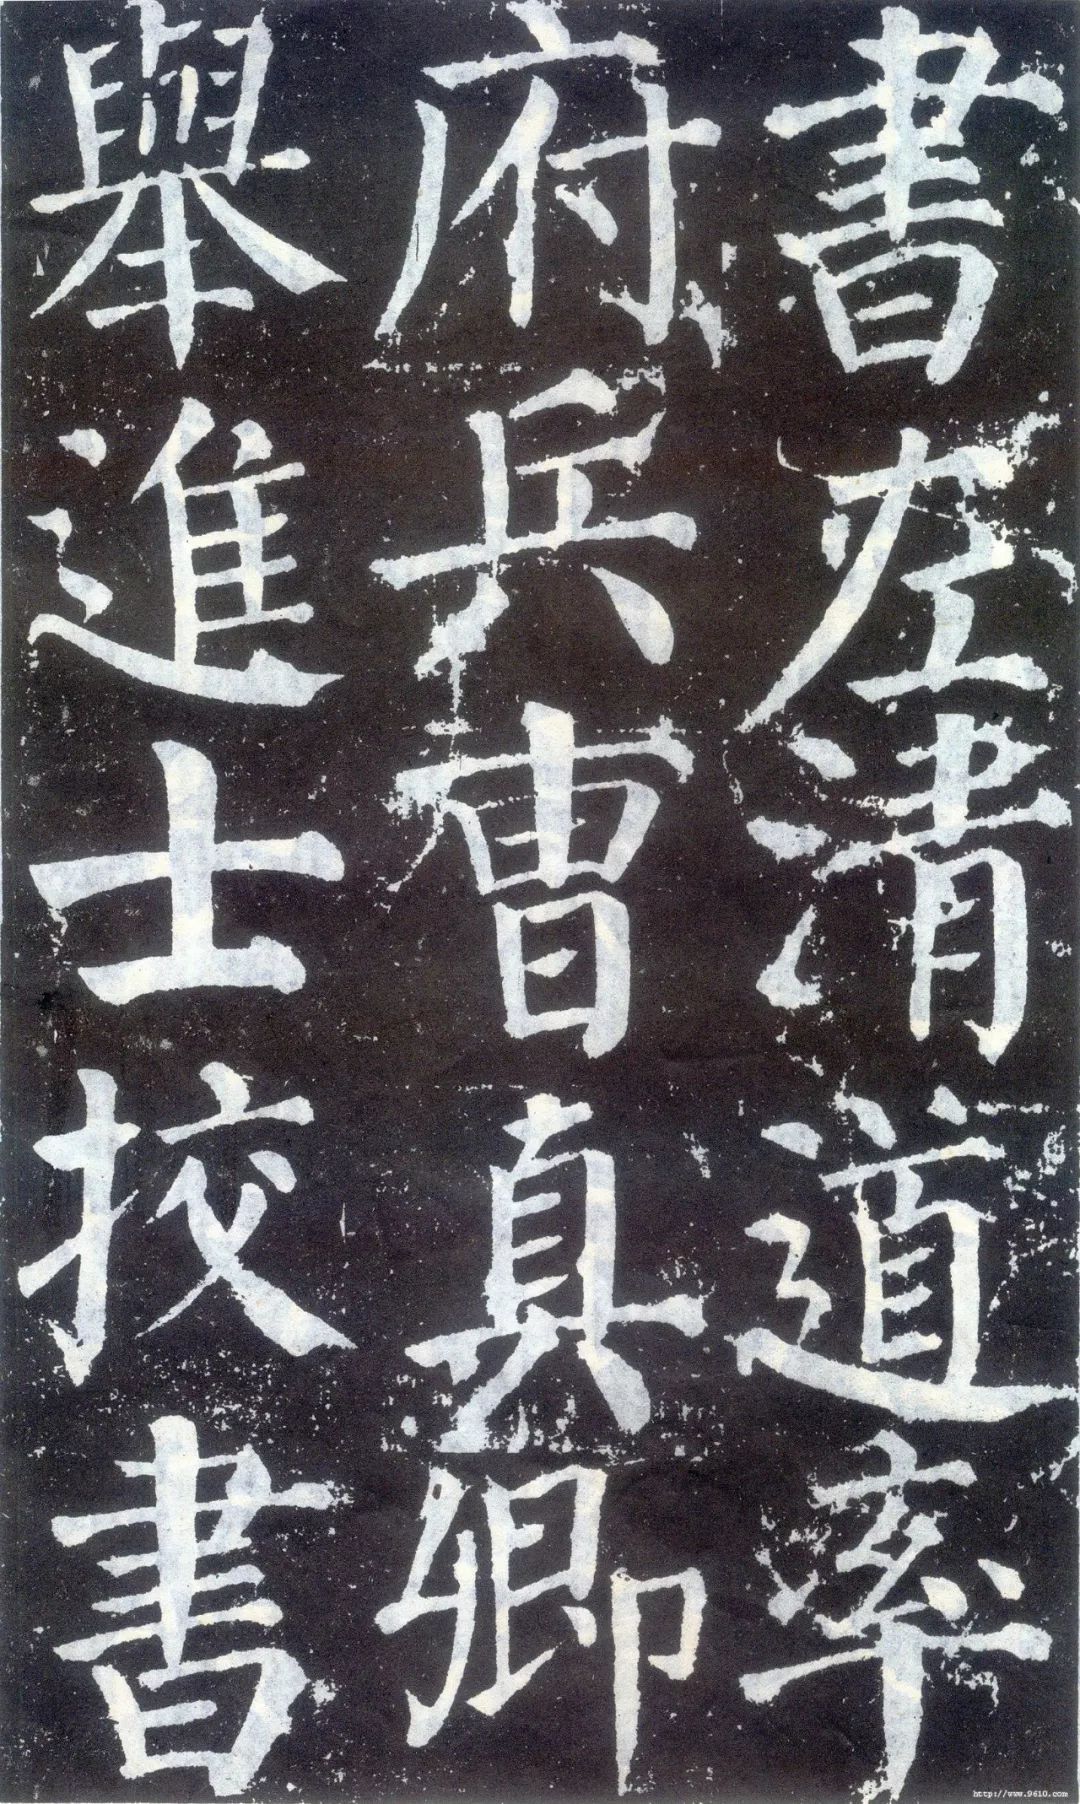 書左清道率
府兵曹真卿
舉進士挍書
http://www.9610.com